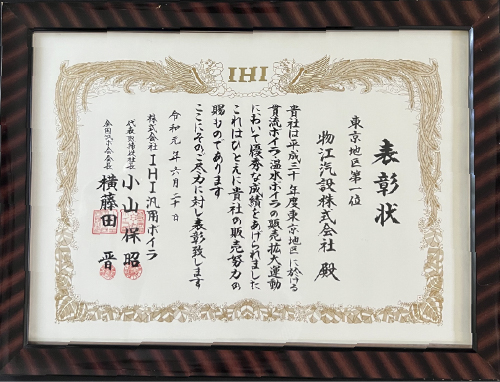 IHI
表彰状
東京地区第一位
物江汽設株式会社 殿
貴社は平成三十年度東京地区に於ける
貫流ボイラ・温水ボイラの販売拡大運動
において優秀な成績をあげられました
これはひとえに貴社の販売努力の
賜ものであります
ここにそのご尽力に対し表彰致します
令和元年六月二十日
株式会社IHI汎用ボイラ
代表取締役社長 小山保昭
全国汎ボ会会長 横藤田晋